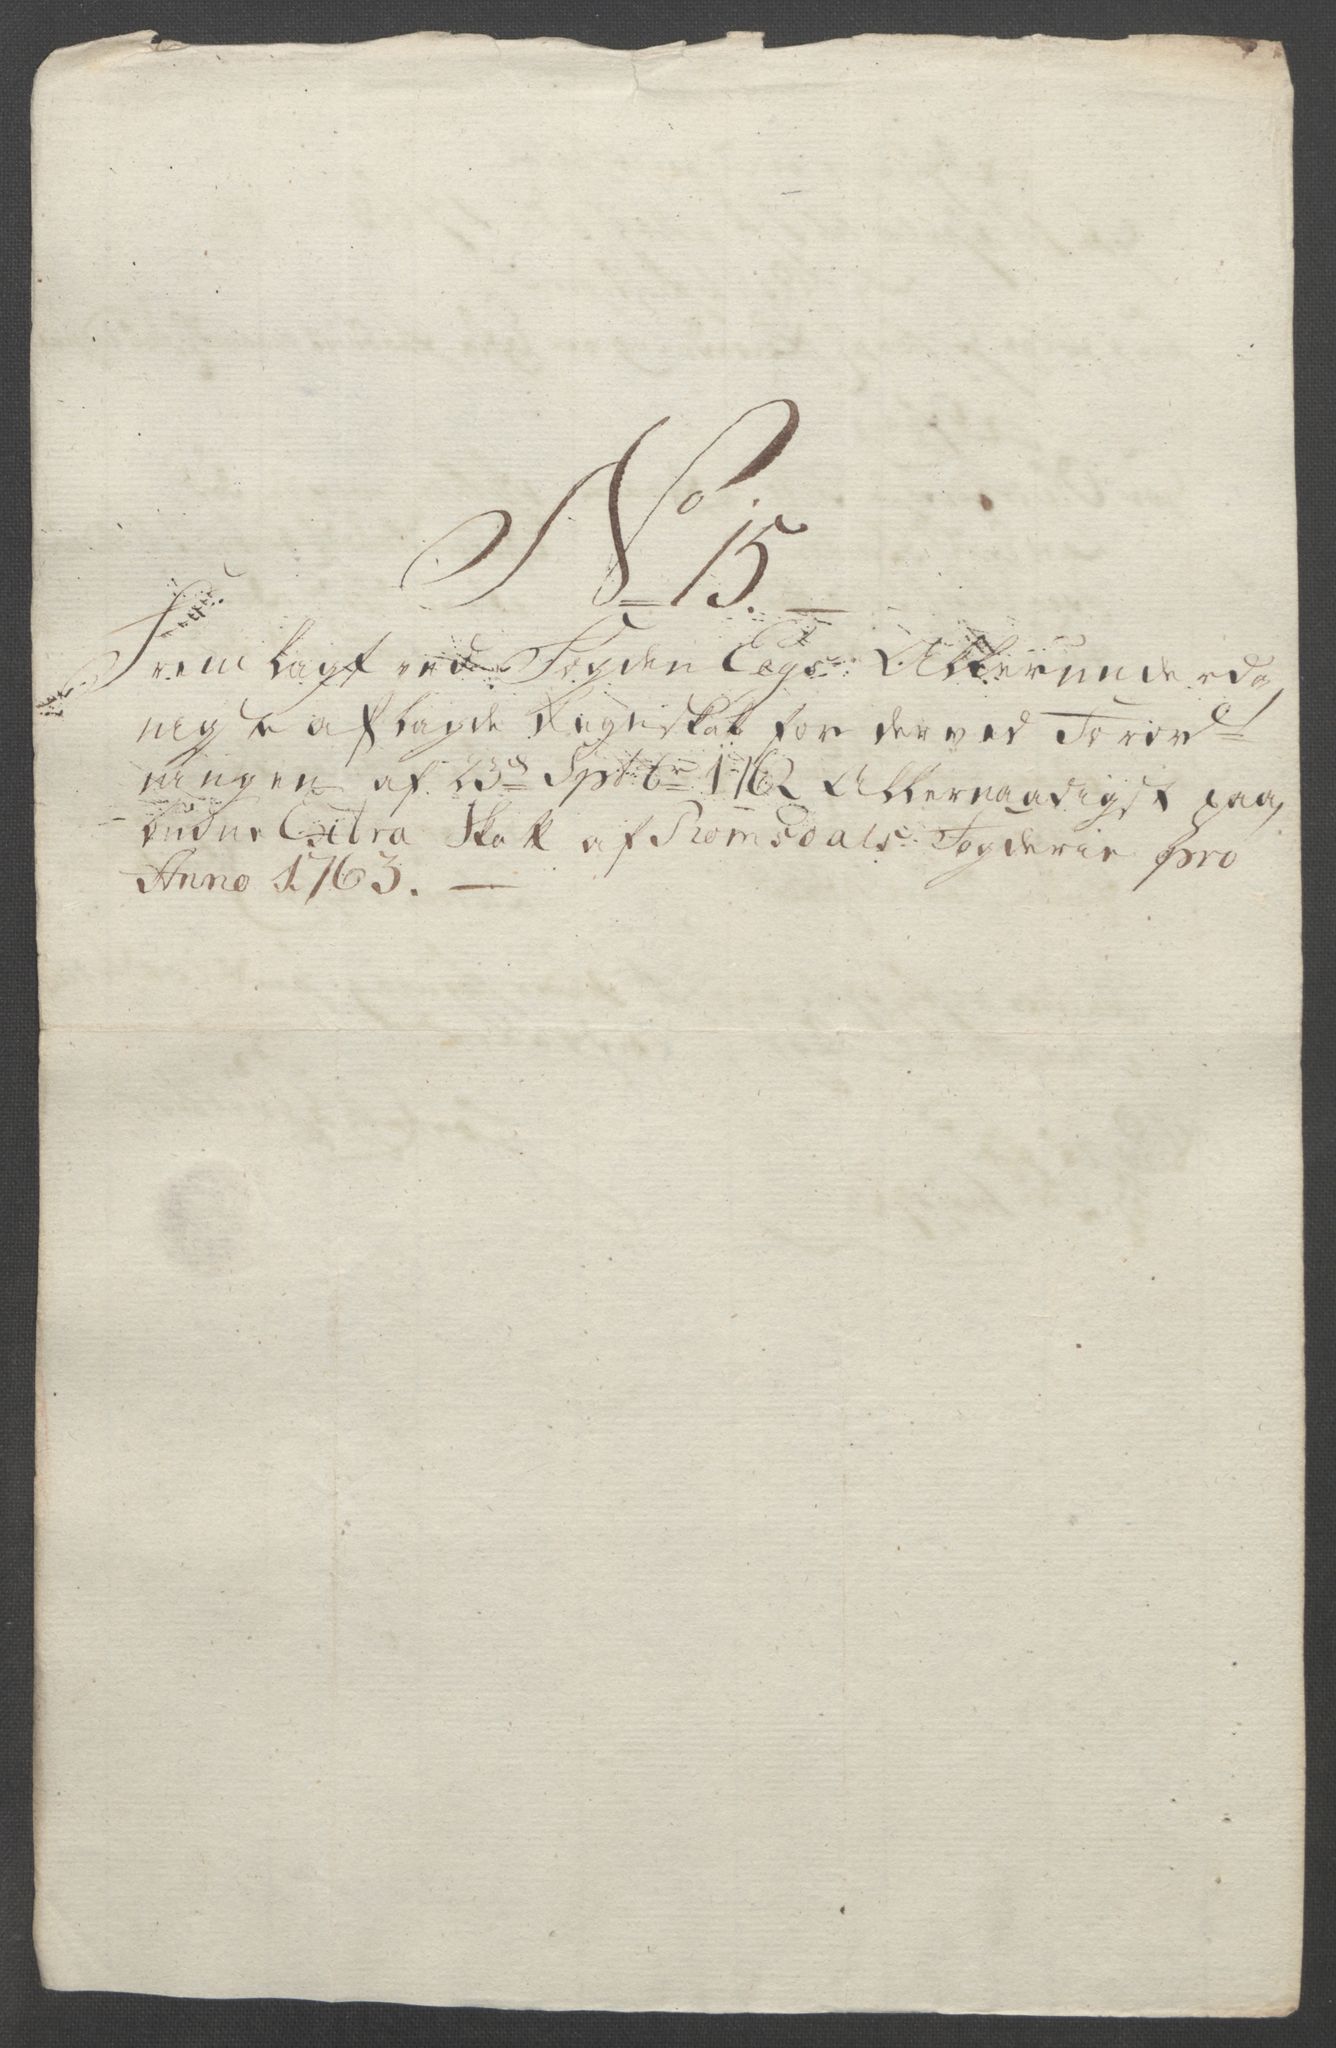 No 15.
Fremlagt ved Fogden Eegs Allerunderda,
nigste aflagde Regnskab for den ved Forord
ningen af 23de Septbr 1762 Allernaadigst paa,
budne Extra Skatt af Romsdals Fogderie pro
Anno 1763.